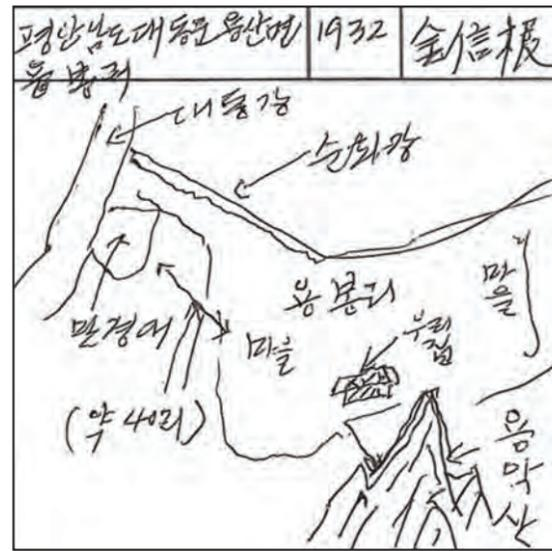 평안남도 대동군 용산면
용봉리
1932
金信根
대동강
순화강
용봉리
마을
만경대
마을
우리
집
(약 40리)
용악산